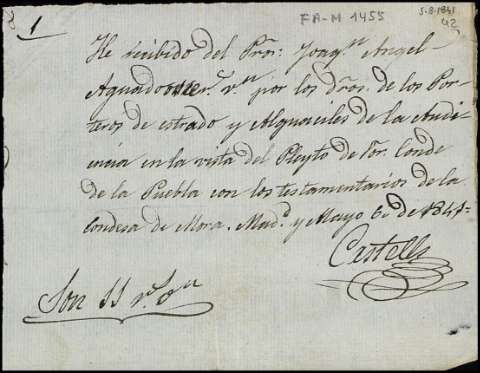 FA-M 1455
5-8-1841
42
1
He recibido del Pror: Joaqn. Angel
Aguado rs. vn. por los dros. de los Por-
teros de estrado y Alguaciles de la Audi-
encia en la vista del Pleyto del Sor. Conde
de la Puebla con los testamentarios de la
Condesa de Mora. Madd. y Mayo 6 de 1841=
Castells
Son 11 rs. vn